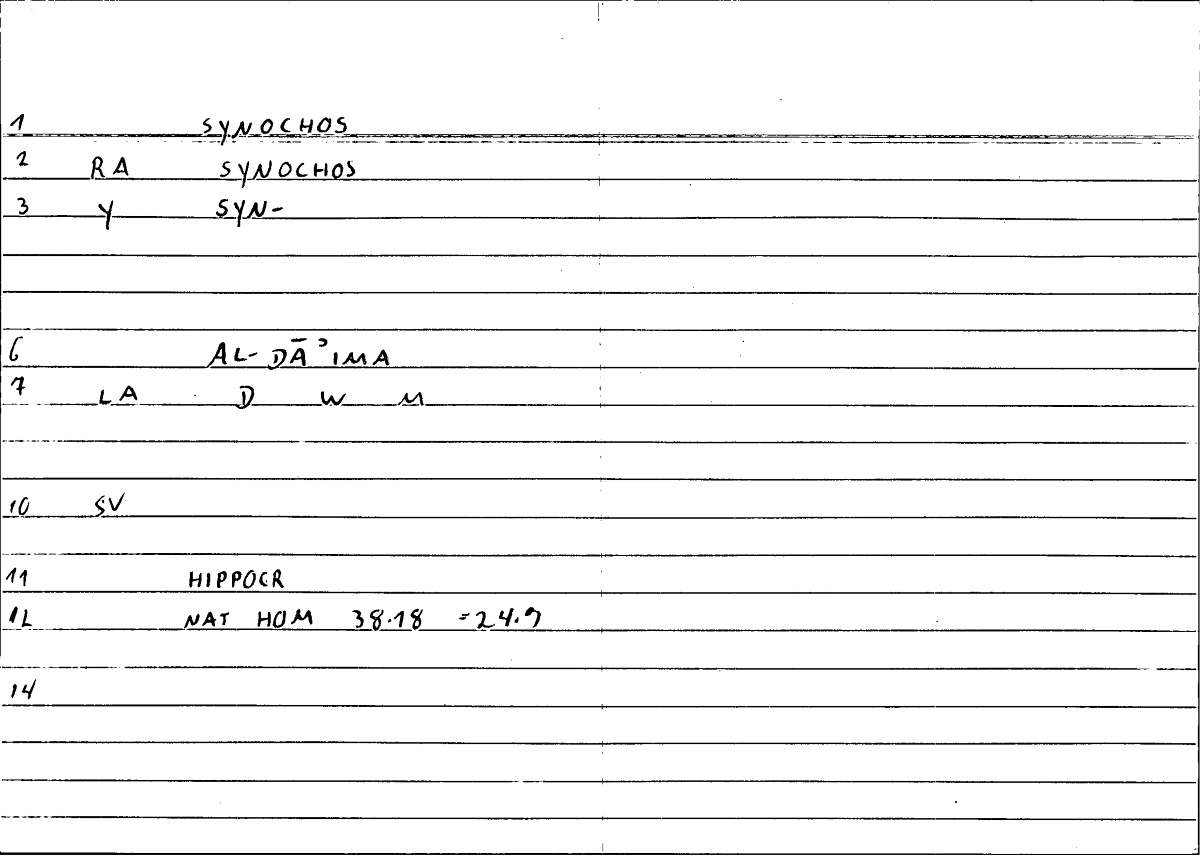 1 SYNOCHOS
2 RA SYNOCHOS
3 Y SYN-
6 AL-DĀʾIMA
7 LA D W M
10 SV
11 HIPPOCR
12 NAT HOM 38.18 =24.9
14